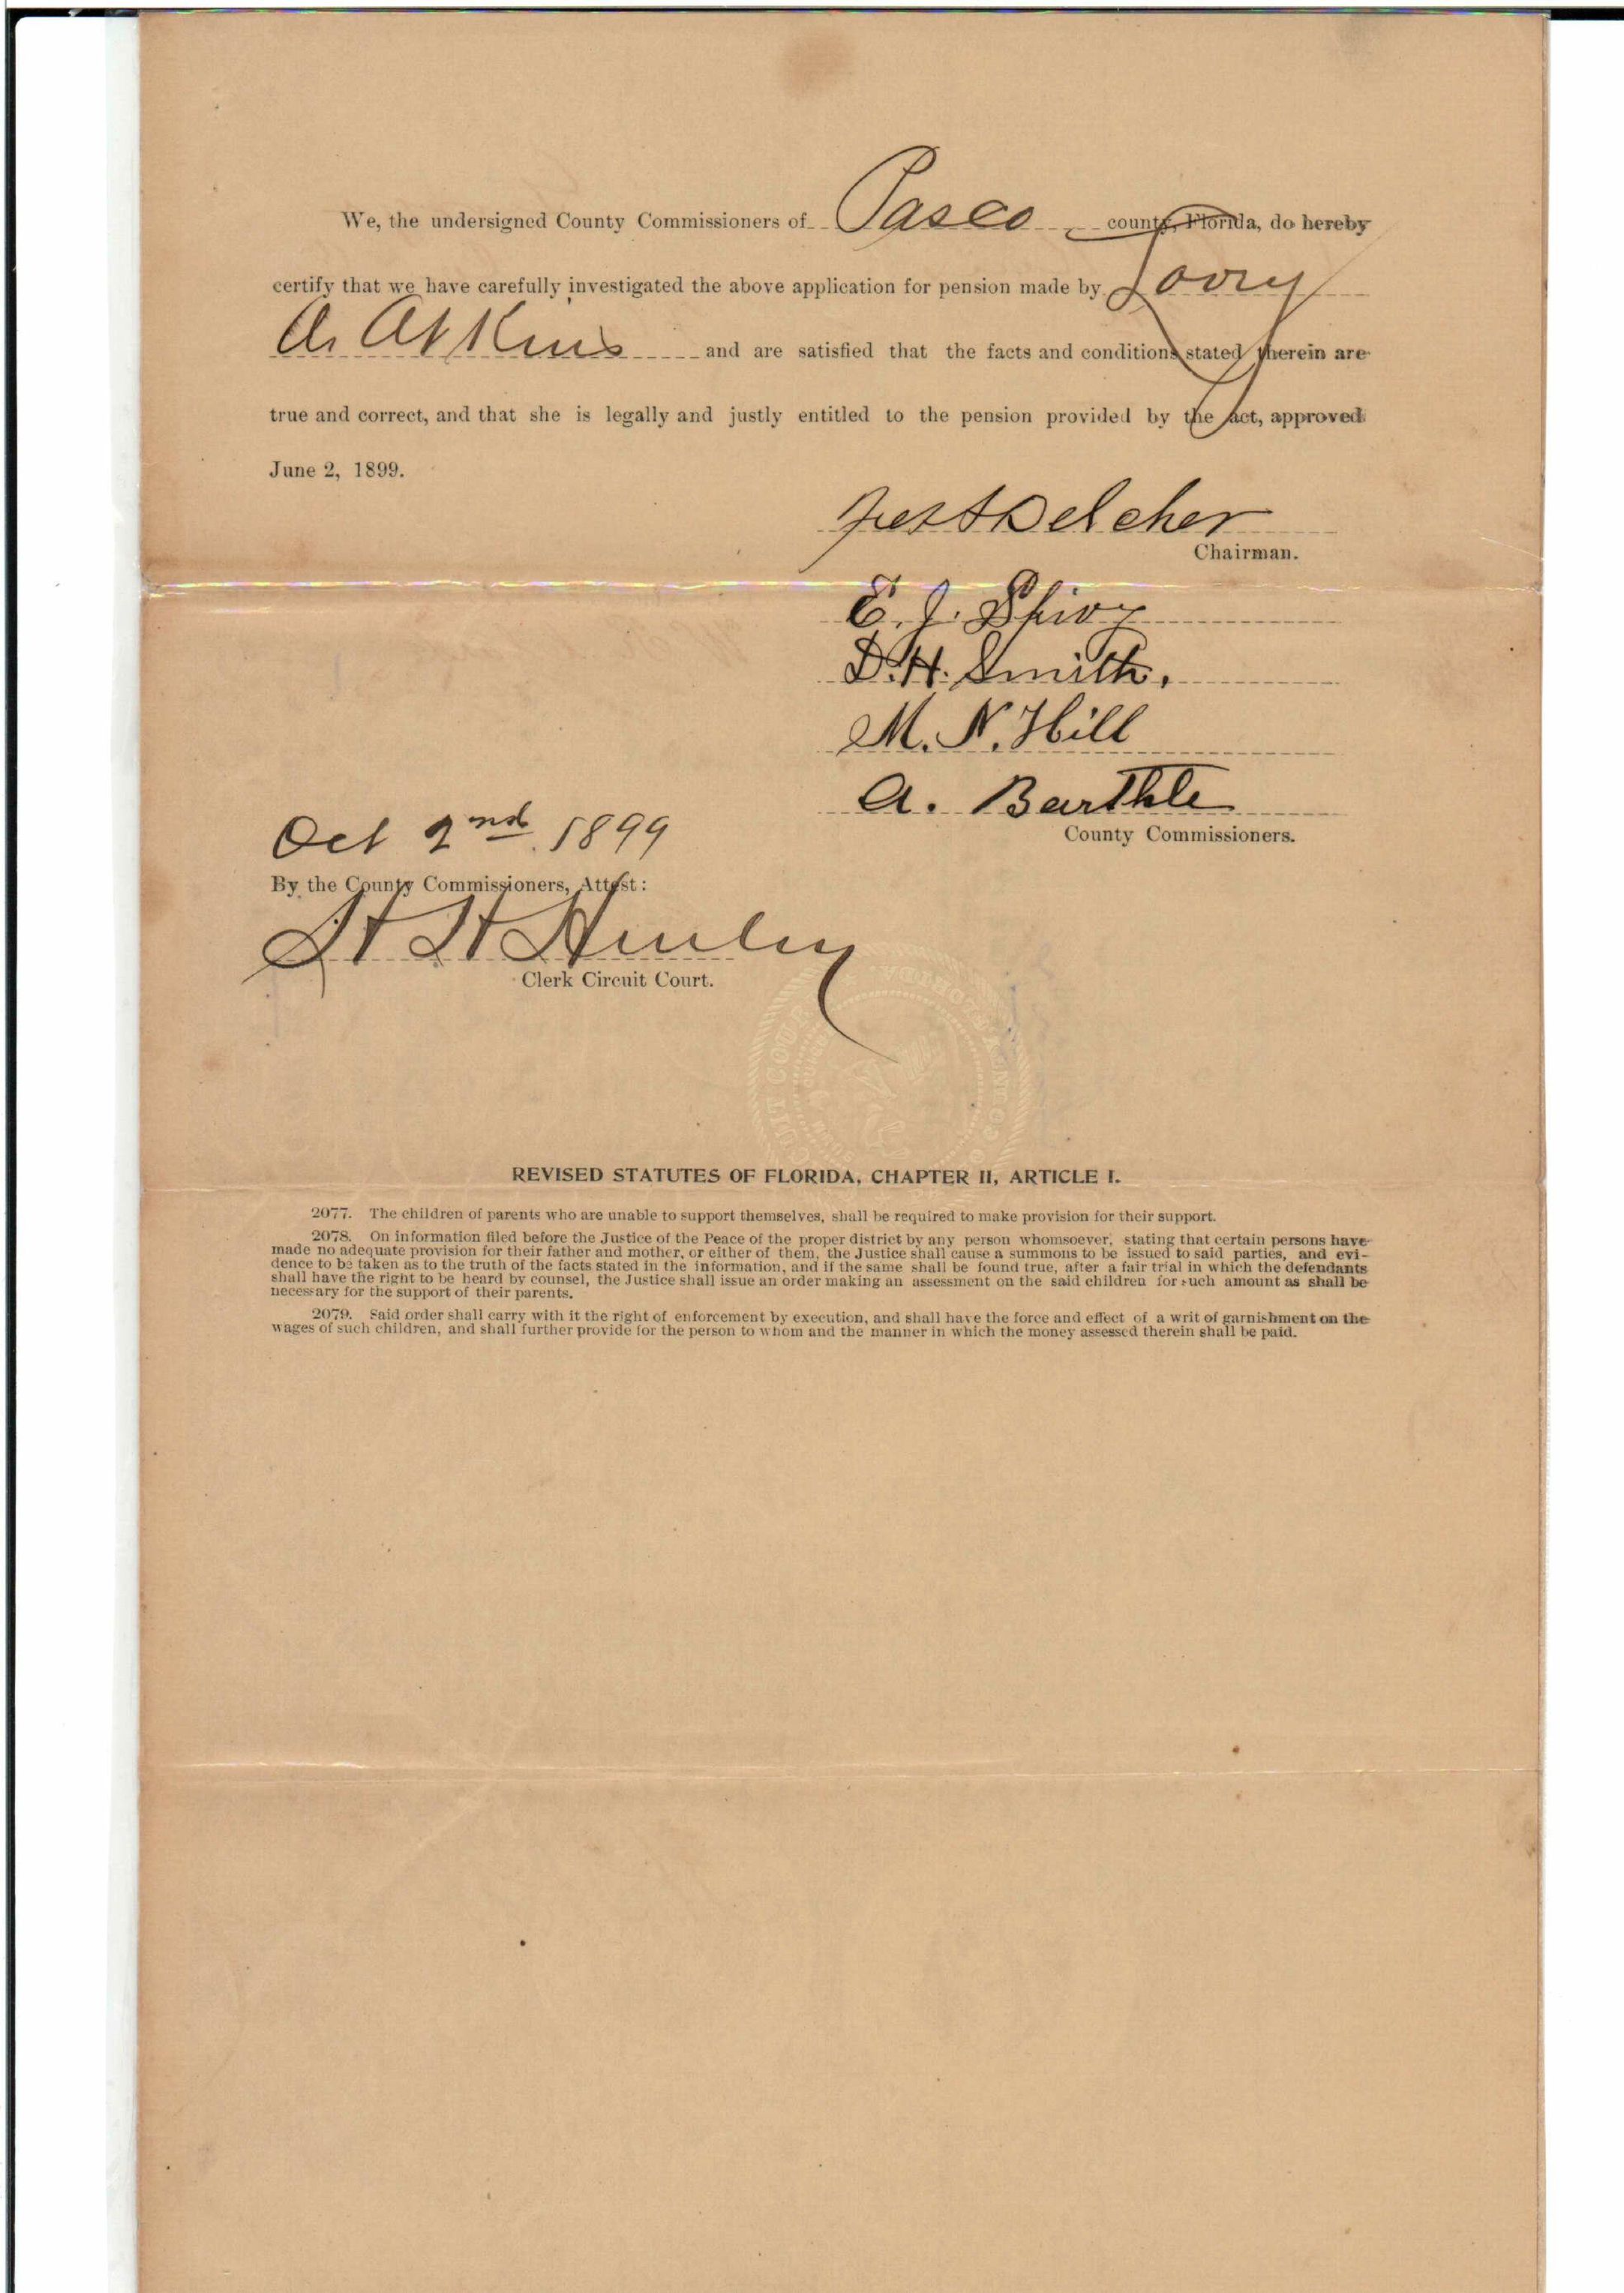 We, the undersigned County Commissioners of Pasco county, Florida, do hereby
certify that we have carefully investigated the above application for pension made by
A. Atkins and are satisfied that the facts and conditions stated therein are
true and correct, and that she is legally and justly entitled to the pension provided by the act, approved
June 2, 1899.
Delcher
Chairman.
E. J. Shivy
D. H. Smith.
M. N. Hill
A. Barthle
County Commissioners.
Oct 2nd 1899
By the County Commissioners, Attest:
Clerk Circuit Court.
REVISED STATUTES OF FLORIDA, CHAPTER II, ARTICLE I.
2077. The children of parents who are unable to support themselves, shall be required to make provision for their support.
2078. On information filed before the Justice of the Peace of the proper district by any person whomsoever, stating that certain persons have
made no adequate provision for their father and mother, or either of them, the Justice shall cause a summons to be issued to said parties, and evi-
dence to be taken as to the truth of the facts stated in the information, and if the same shall be found true, after a fair trial in which the defendants
shall have the right to be heard by counsel, the Justice shall issue an order making an assessment on the said children for such amount as shall be
necessary for the support of their parents.
2079. Said order shall carry with it the right of enforcement by execution, and shall have the force and effect of a writ of garnishment on the
wages of such children, and shall further provide for the person to whom and the manner in which the money assessed therein shall be paid.